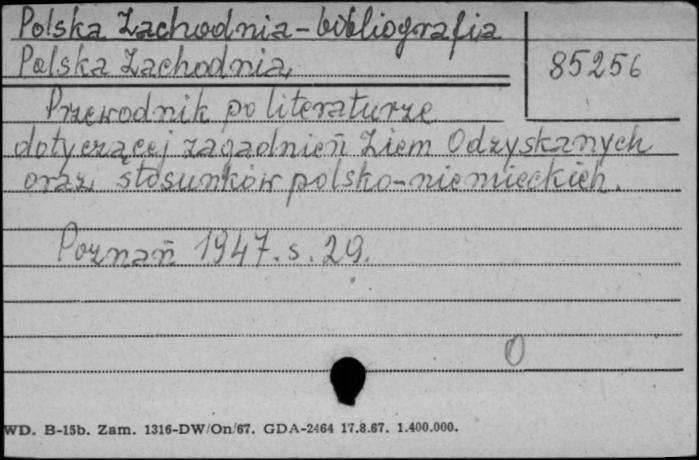 Polska Zachodnia - bibliografia
Polska Zachodnia,
85256
Przewodnik po literaturze
dotyczącej zagadnień Ziem Odzyskanych
oraz stosunków polsko-niemieckich.
Poznań 1947. s. 29.
0
WD. B-15b. Zam. 1316-DW/On/67. GDA-2464 17.8.67. 1.400.000.